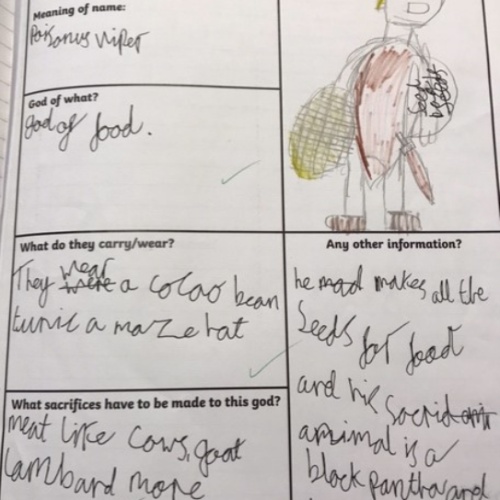 Meaning of name:
Poisonus viper
God of what?
god of food.
What do they carry/wear?
They wear a cocao bean
tunic a maze hat
What sacrifices have to be made to this god?
meat like cows, goat
lamb and more
Any other information?
he makes all the
seeds for food
and his sacrid
animal is a
black panther and